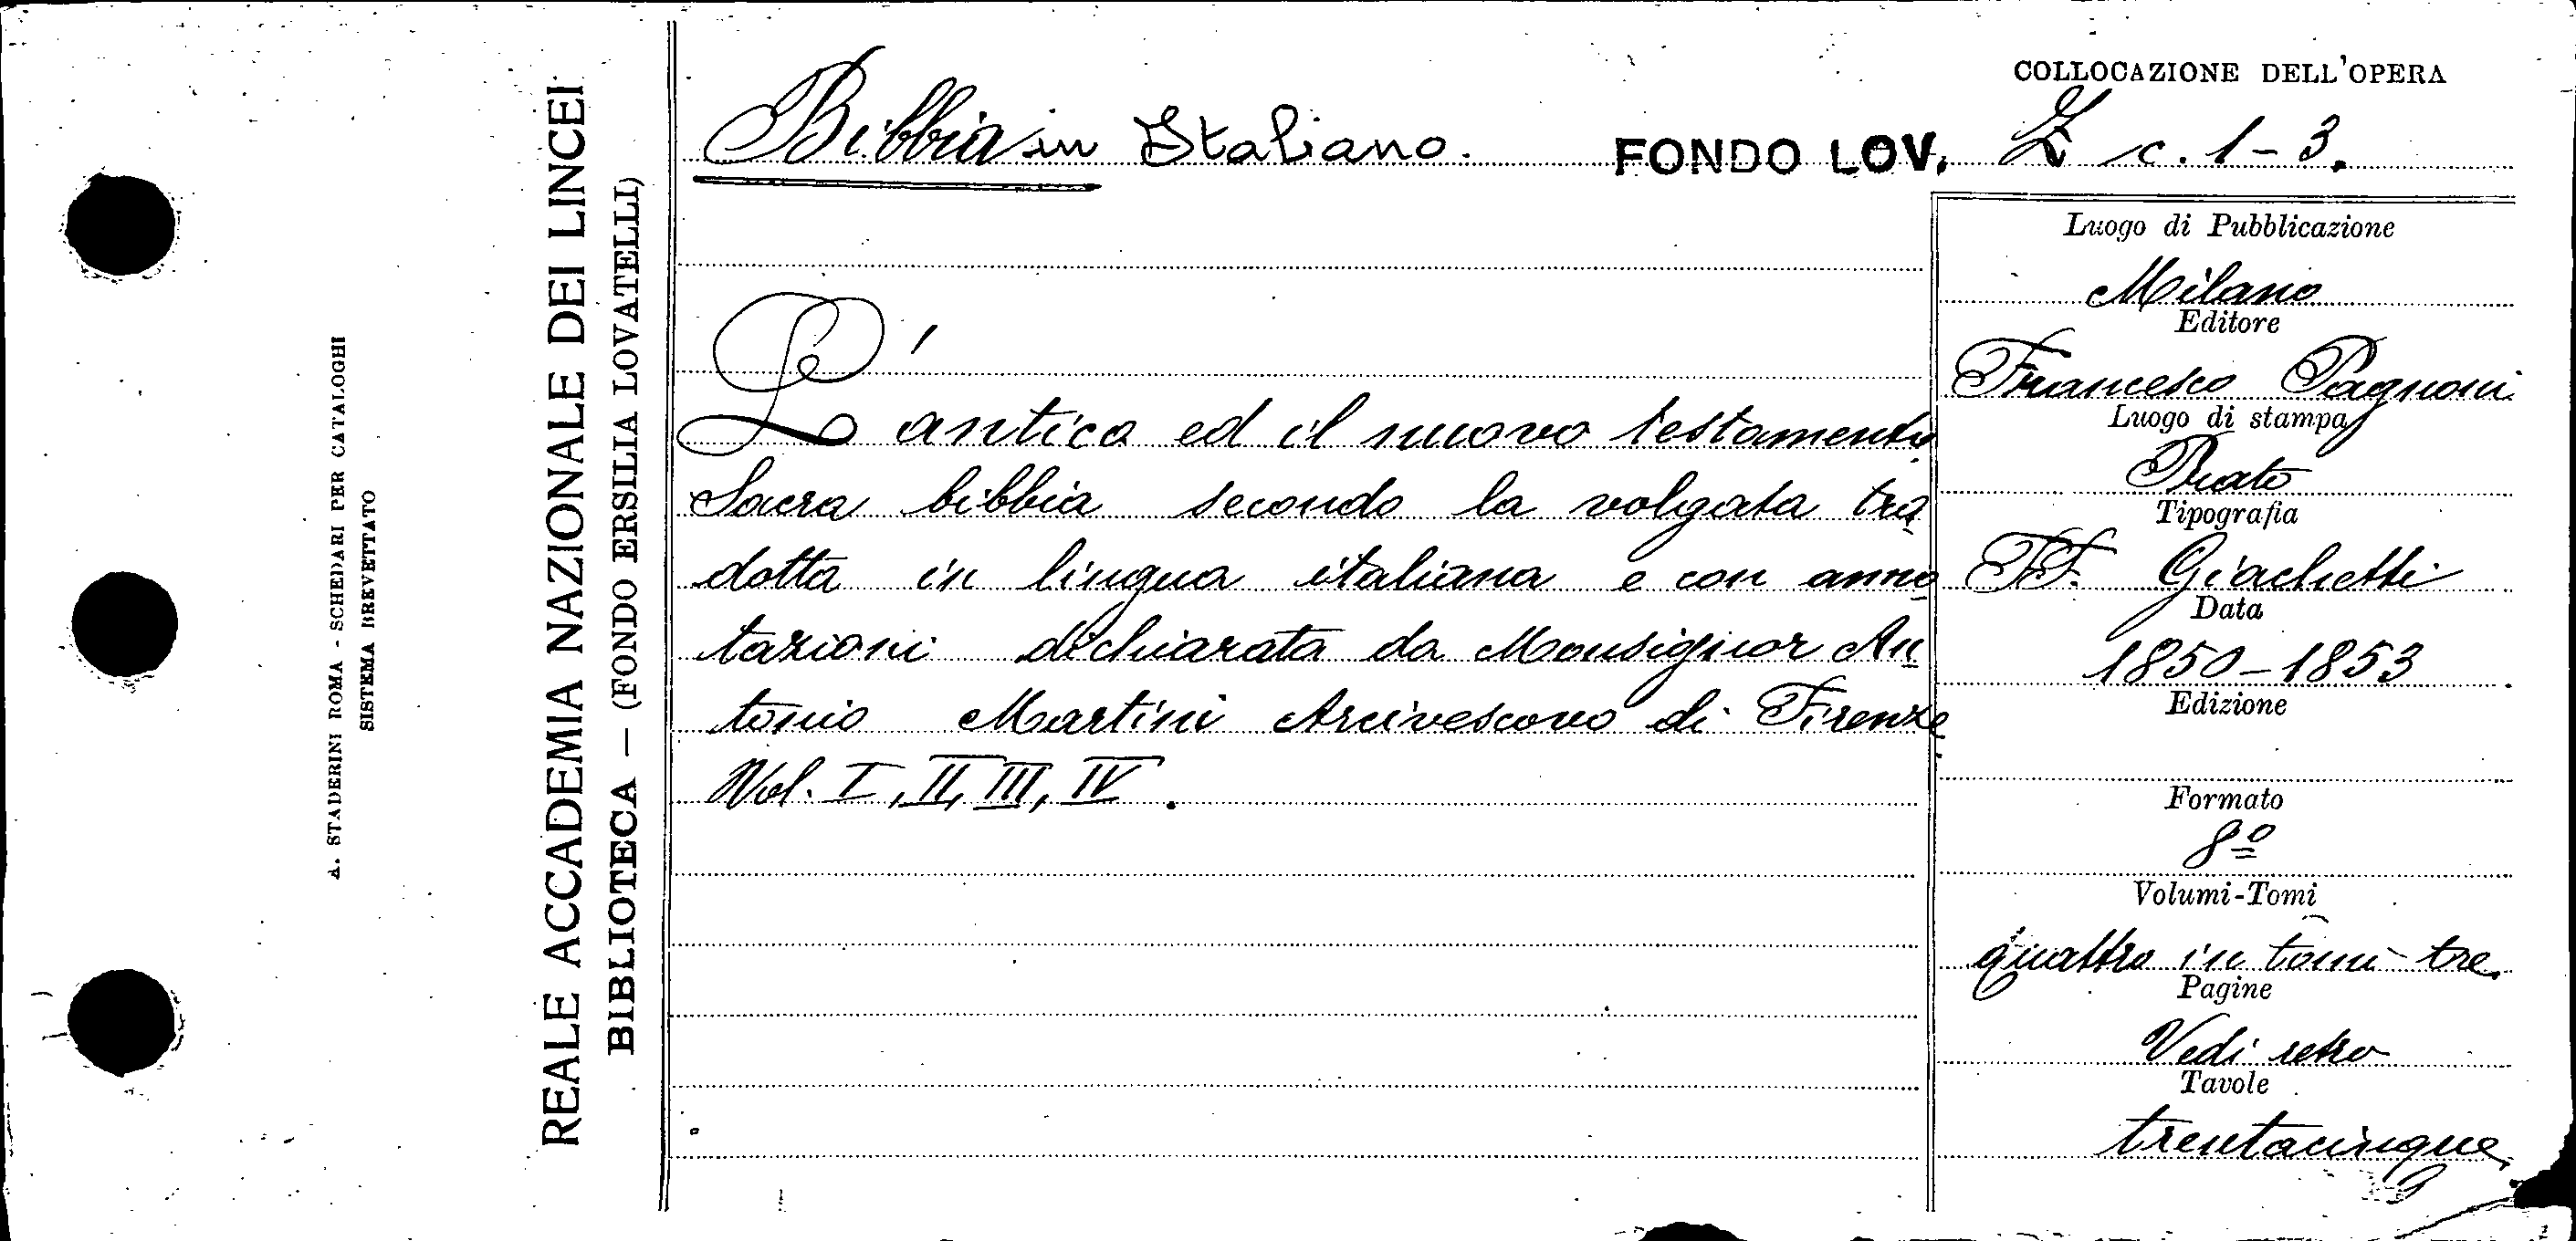 A. STADERINI ROMA - SCHEDARI PER CATALOGHI
SISTEMA BREVETTATO
REALE ACCADEMIA NAZIONALE DEI LINCEI
BIBLIOTECA — (FONDO ERSILIA LOVATELLI)
Bibbia in Italiano.
FONDO LOV.
COLLOCAZIONE DELL'OPERA
Z c. 1-3.
L'
antico ed il nuovo testamento
Sacra bibbia secondo la volgata tra
dotta in lingua italiana e con anno
tazioni dichiarata da Monsignor An
tonio Martini Arcivescovo di Firenze
Vol. I, II, III, IV.
Luogo di Pubblicazione
Milano
Editore
Francesco Pagnoni
Luogo di stampa
Prato
Tipografia
FF. Giachetti
Data
1850-1853
Edizione
Formato
8º
Volumi-Tomi
quattro in tomi tre
Pagine
Vedi retro
Tavole
trentacinque